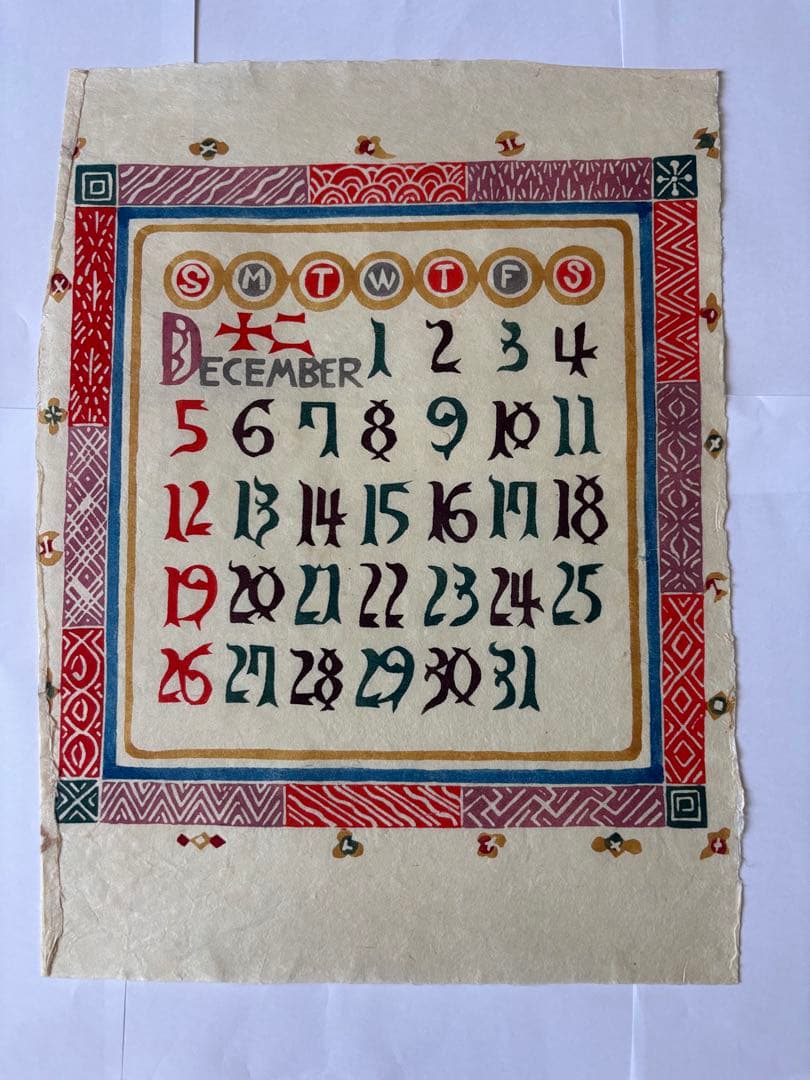 S M T W T F S
十二
DECEMBER 1 2 3 4
5 6 7 8 9 10 11
12 13 14 15 16 17 18
19 20 21 22 23 24 25
26 27 28 29 30 31